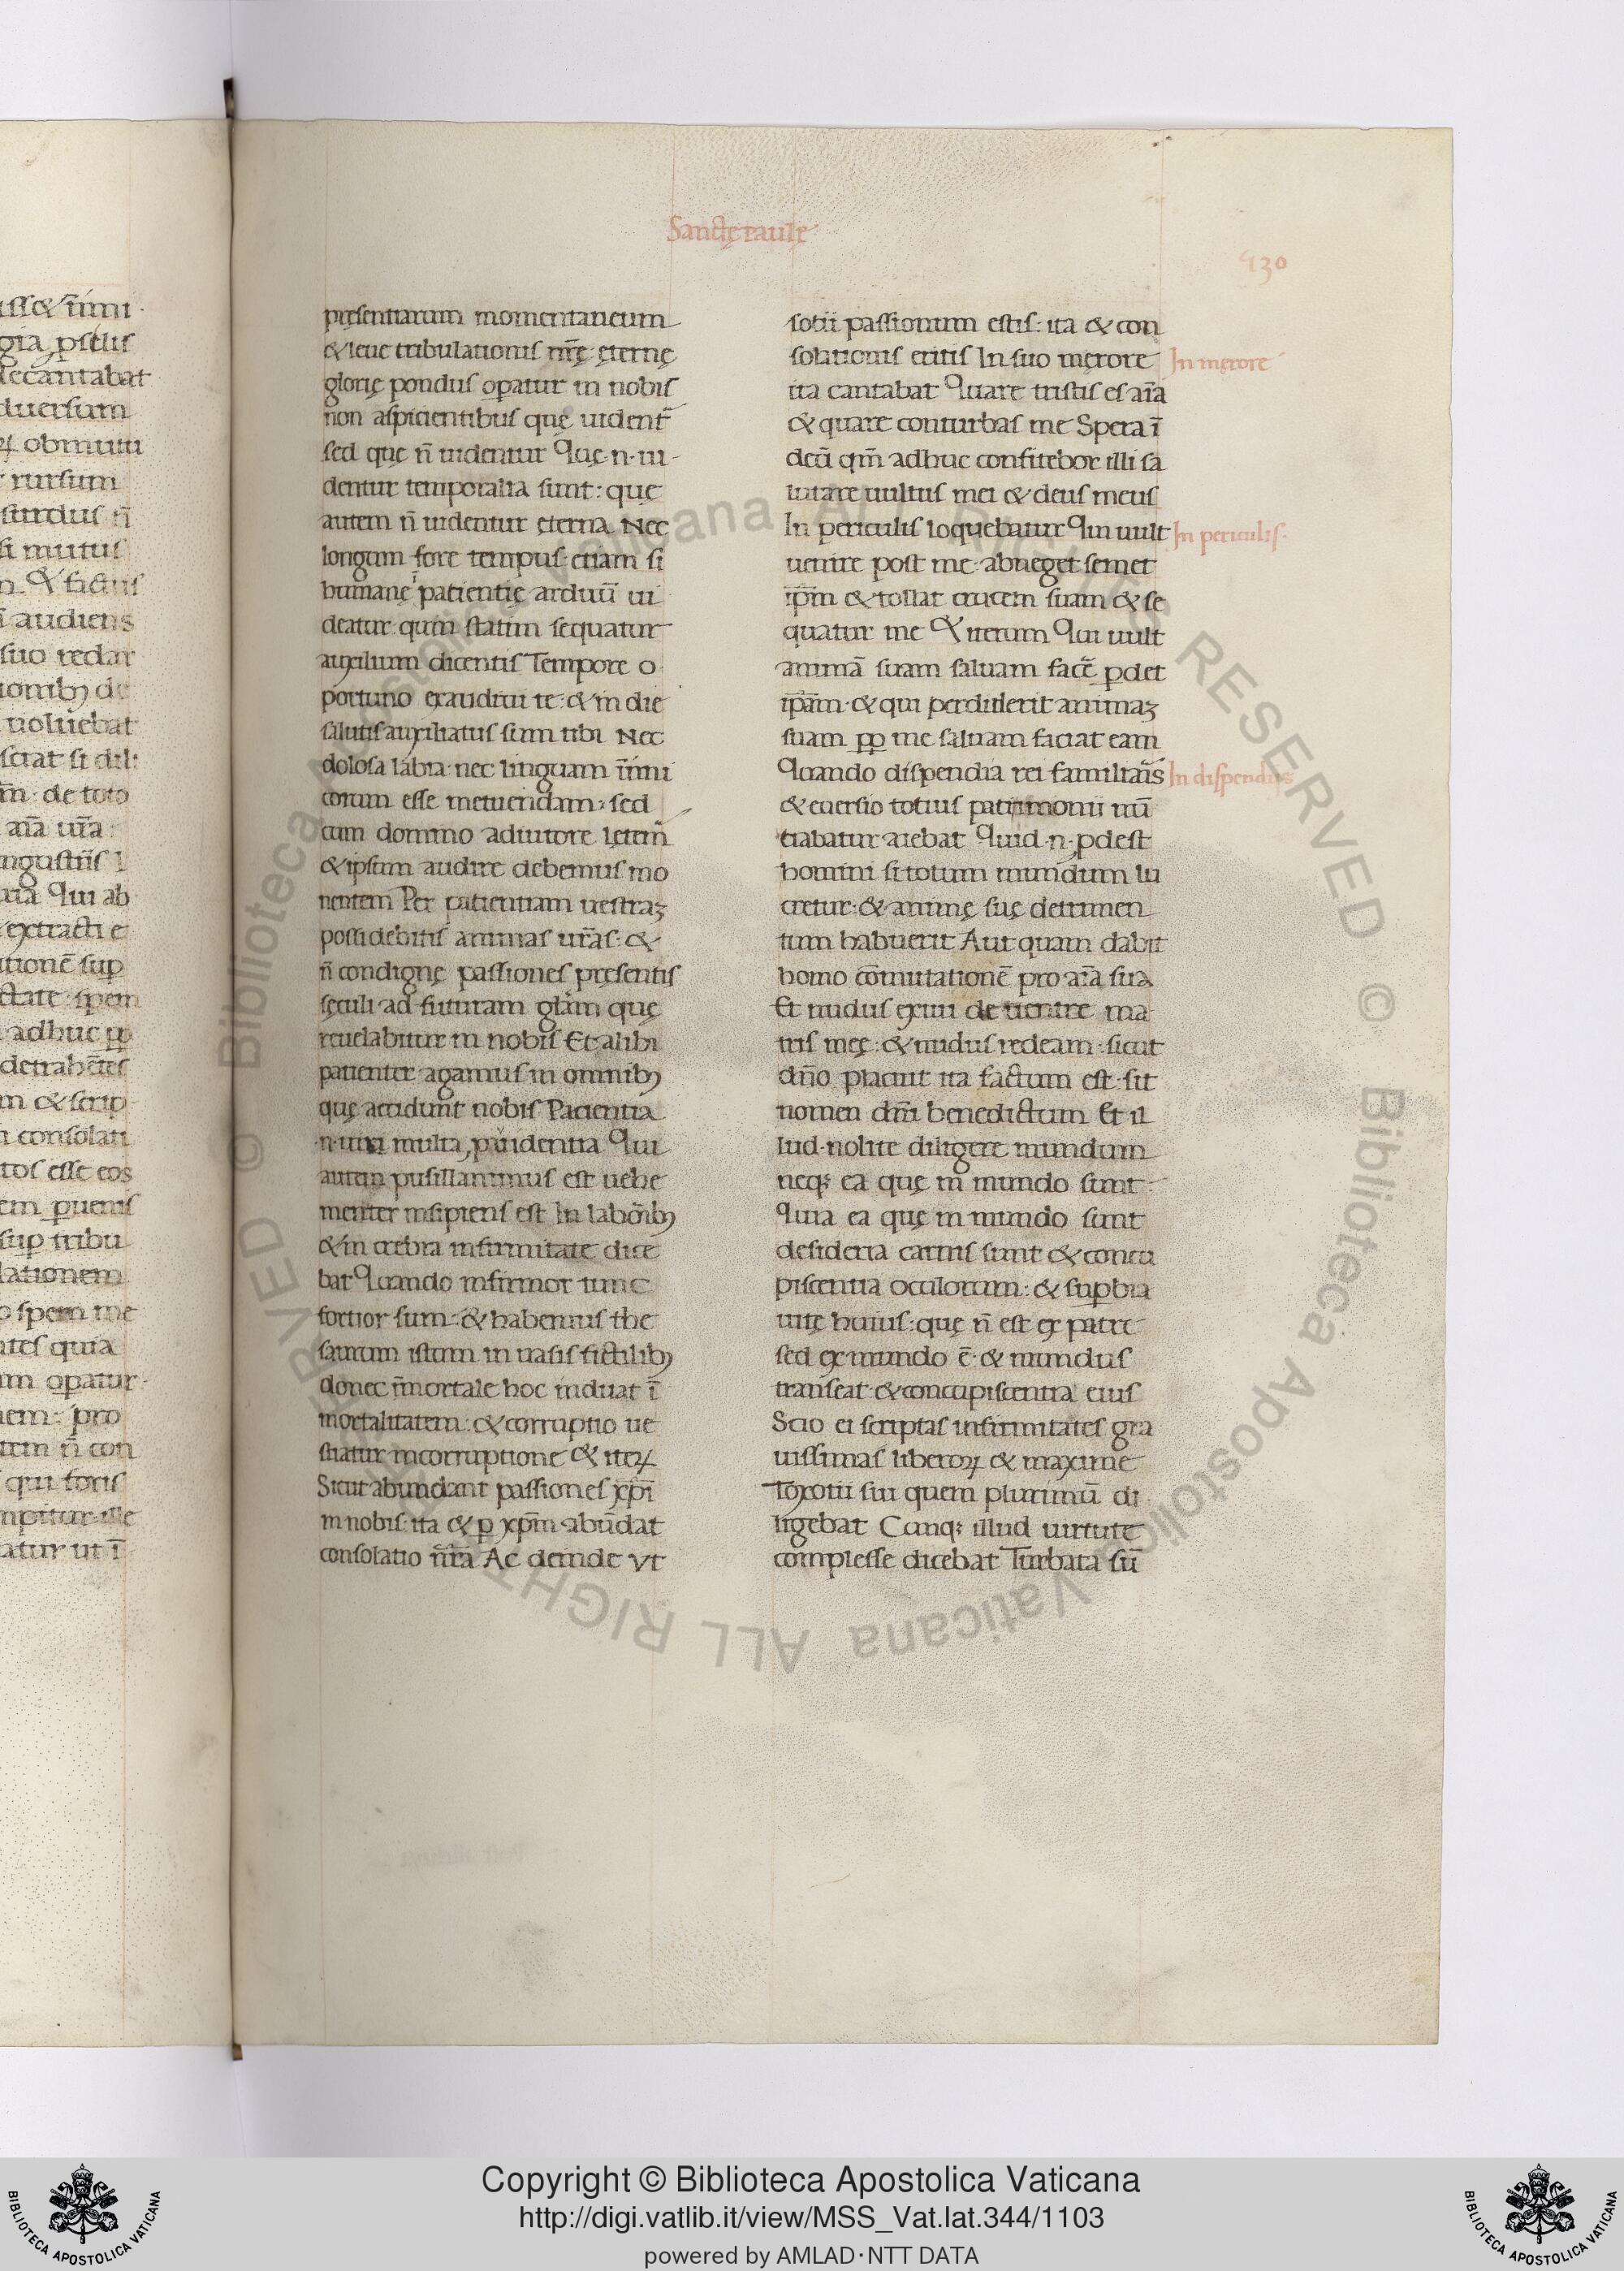 Sanctę Paulę
930
pręsentiarum momentaneum
& leue tribulationis nr̃ę ęternę
glorię pondus oꝑatur in nobis
non aspicientibus quę uident̃
sed quę ñ uidentur Quę ·n· ui-
dentur temporalia sunt: quę
autem ñ uidentur ęterna Nec
longum fore tempus etiam si
humanę patientię arduū ui
deatur quin statim sequatur
auxilium dicentis Tempore o
portuno exaudiui te: & in die
salutis auxiliatus sum tibi Nec
dolosa labia nec linguam inimi
corum esse metuendam: sed
cum domino adiutore lętem̃
& ipsum audire debemus mo
nentem Per patientiam uestraꝫ
possidebitis animas ur̃as: &
ñ condignę passiones pręsentis
sęculi ad futuram gl̃am quę
reuelabitur in nobis Et alibi
patienter agamus in omnibꝫ
quę accidunt nobis Pacientia
·n· uiri multa, puidentia Qui
autem pusillanimus est uehe
menter insipiens est In labõibꝫ
& in crebra infirmitate dice
bat Quando infirmor tunc
fortior sum: & habemus the
saurum istum in uasis fictilibꝫ
donec īmortale hoc induat ī
mortalitatem: & corruptio ue
stiatur incorruptione & iteꝝ
Sicut abundant passiones xp̄i
in nobis: ita & ꝑ xp̄m abūdat
consolatio nr̃a Ac deinde Vt
sotii passionum estis: ita & con
solationis eritis In suo męrore
ita cantabat Quare tristis es aīa
& quare conturbas me Spera ī
deū qm̄ adhuc confitebor illi sa
lutare uultus mei & deus meus
In periculis loquebatur Qui uult
uenire post me abneget semet
ip̄m & tollat crucem suam & se
quatur me & iterum Qui uult
animā suam saluam facē ꝑdet
ip̄am · & qui perdiderit animaꝫ
suam ꝓꝑ me saluam faciat eam
Quando dispendia rei familiaris
& euersio totius patrimonii nū
tiabatur aiebat Quid ·n· ꝓdest
homini si totum mundum lu
cretur: & animę suę detrimen
tum habuerit Aut quam dabit
homo cōmutationē pro aīa sua
Et nudus exiui de uentre ma
tris meę: & nudus redeam: sicut
dño placuit ita factum est: sit
nomen dñi benedictum Et il
lud · nolite diligere mundum
neqꝫ ea quę in mundo sunt
Quia ea quę in mundo sunt
desideria carnis sunt & concu
piscentia oculorum: & suꝑbia
uitę huius: quę ñ est ex patre
sed ex mundo ē · & mundus
transeat & concupiscentia eius
Scio ei scriptas infirmitates gra
uissimas liberoꝝ & maxime
Toxotii sui quem plurimū di
ligebat Cunqꝫ illud uirtute
complesse dicebat Turbata sū
In męrore
In periculis
In dispendiis
Copyright © Biblioteca Apostolica Vaticana
http://digi.vatlib.it/view/MSS_Vat.lat.344/1103
powered by AMLAD·NTT DATA